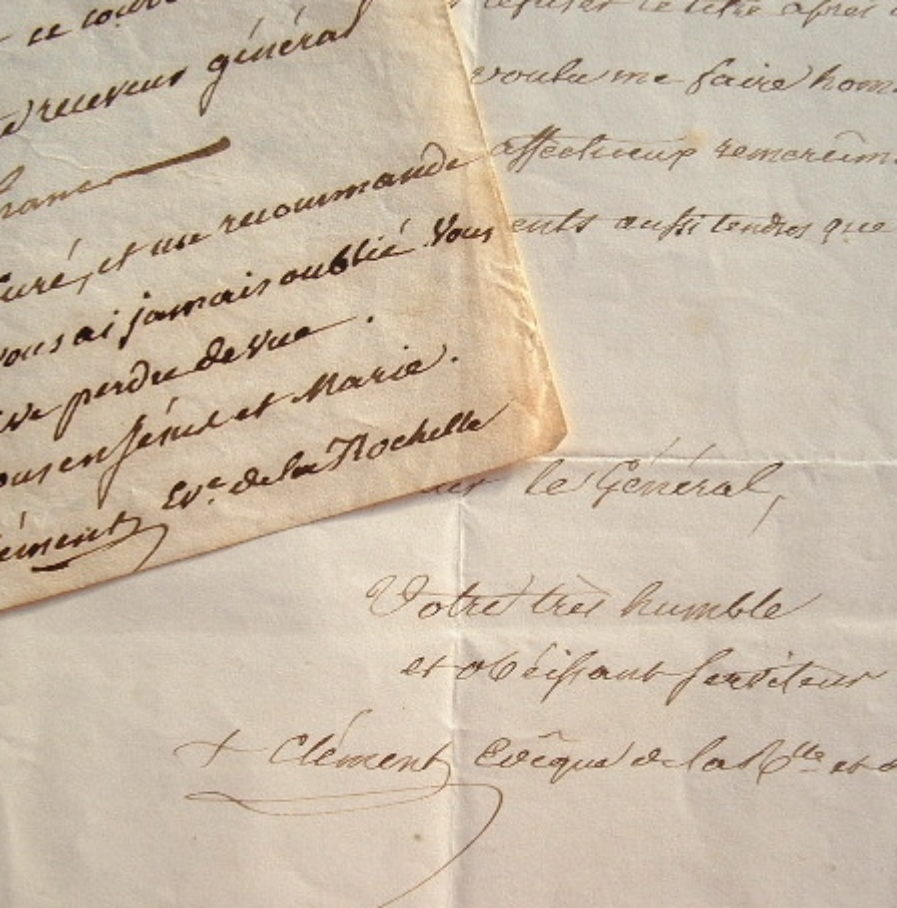 receveur général
franc
curé, et me recommande
vous ai jamais oublié. Vous
perdu de vue.
en Jésus et Marie.
Clément Ev.e de la Rochelle
refuser le titre après
voulu me faire hom
affectueux remercîm
ents aussi tendres que
le Général,
Votre très humble
et obéissant serviteur
+ Clément Evêque de la R.lle et